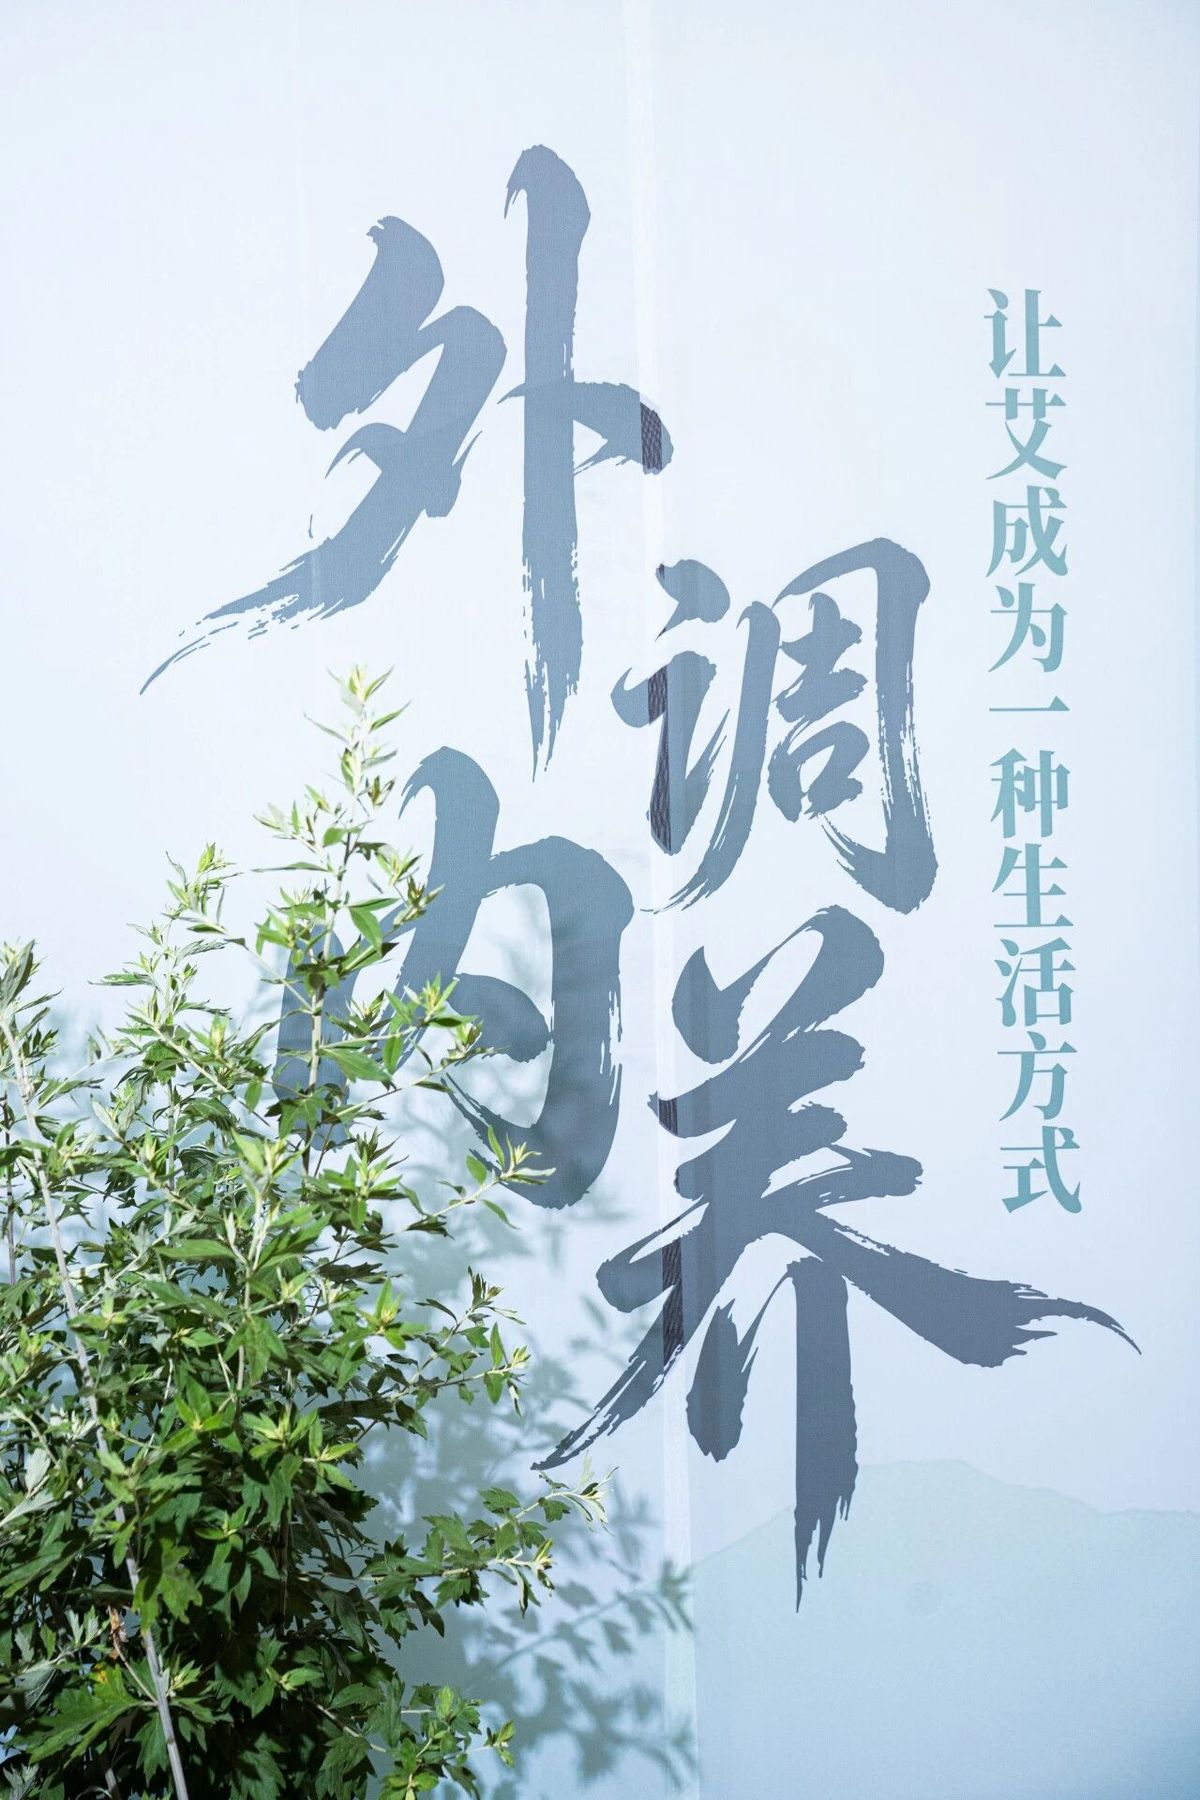 外调
内养
让艾成为一种生活方式